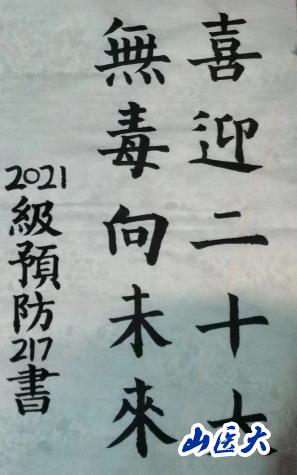 喜迎二十大
無毒向未來
2021級預防217書
山医大